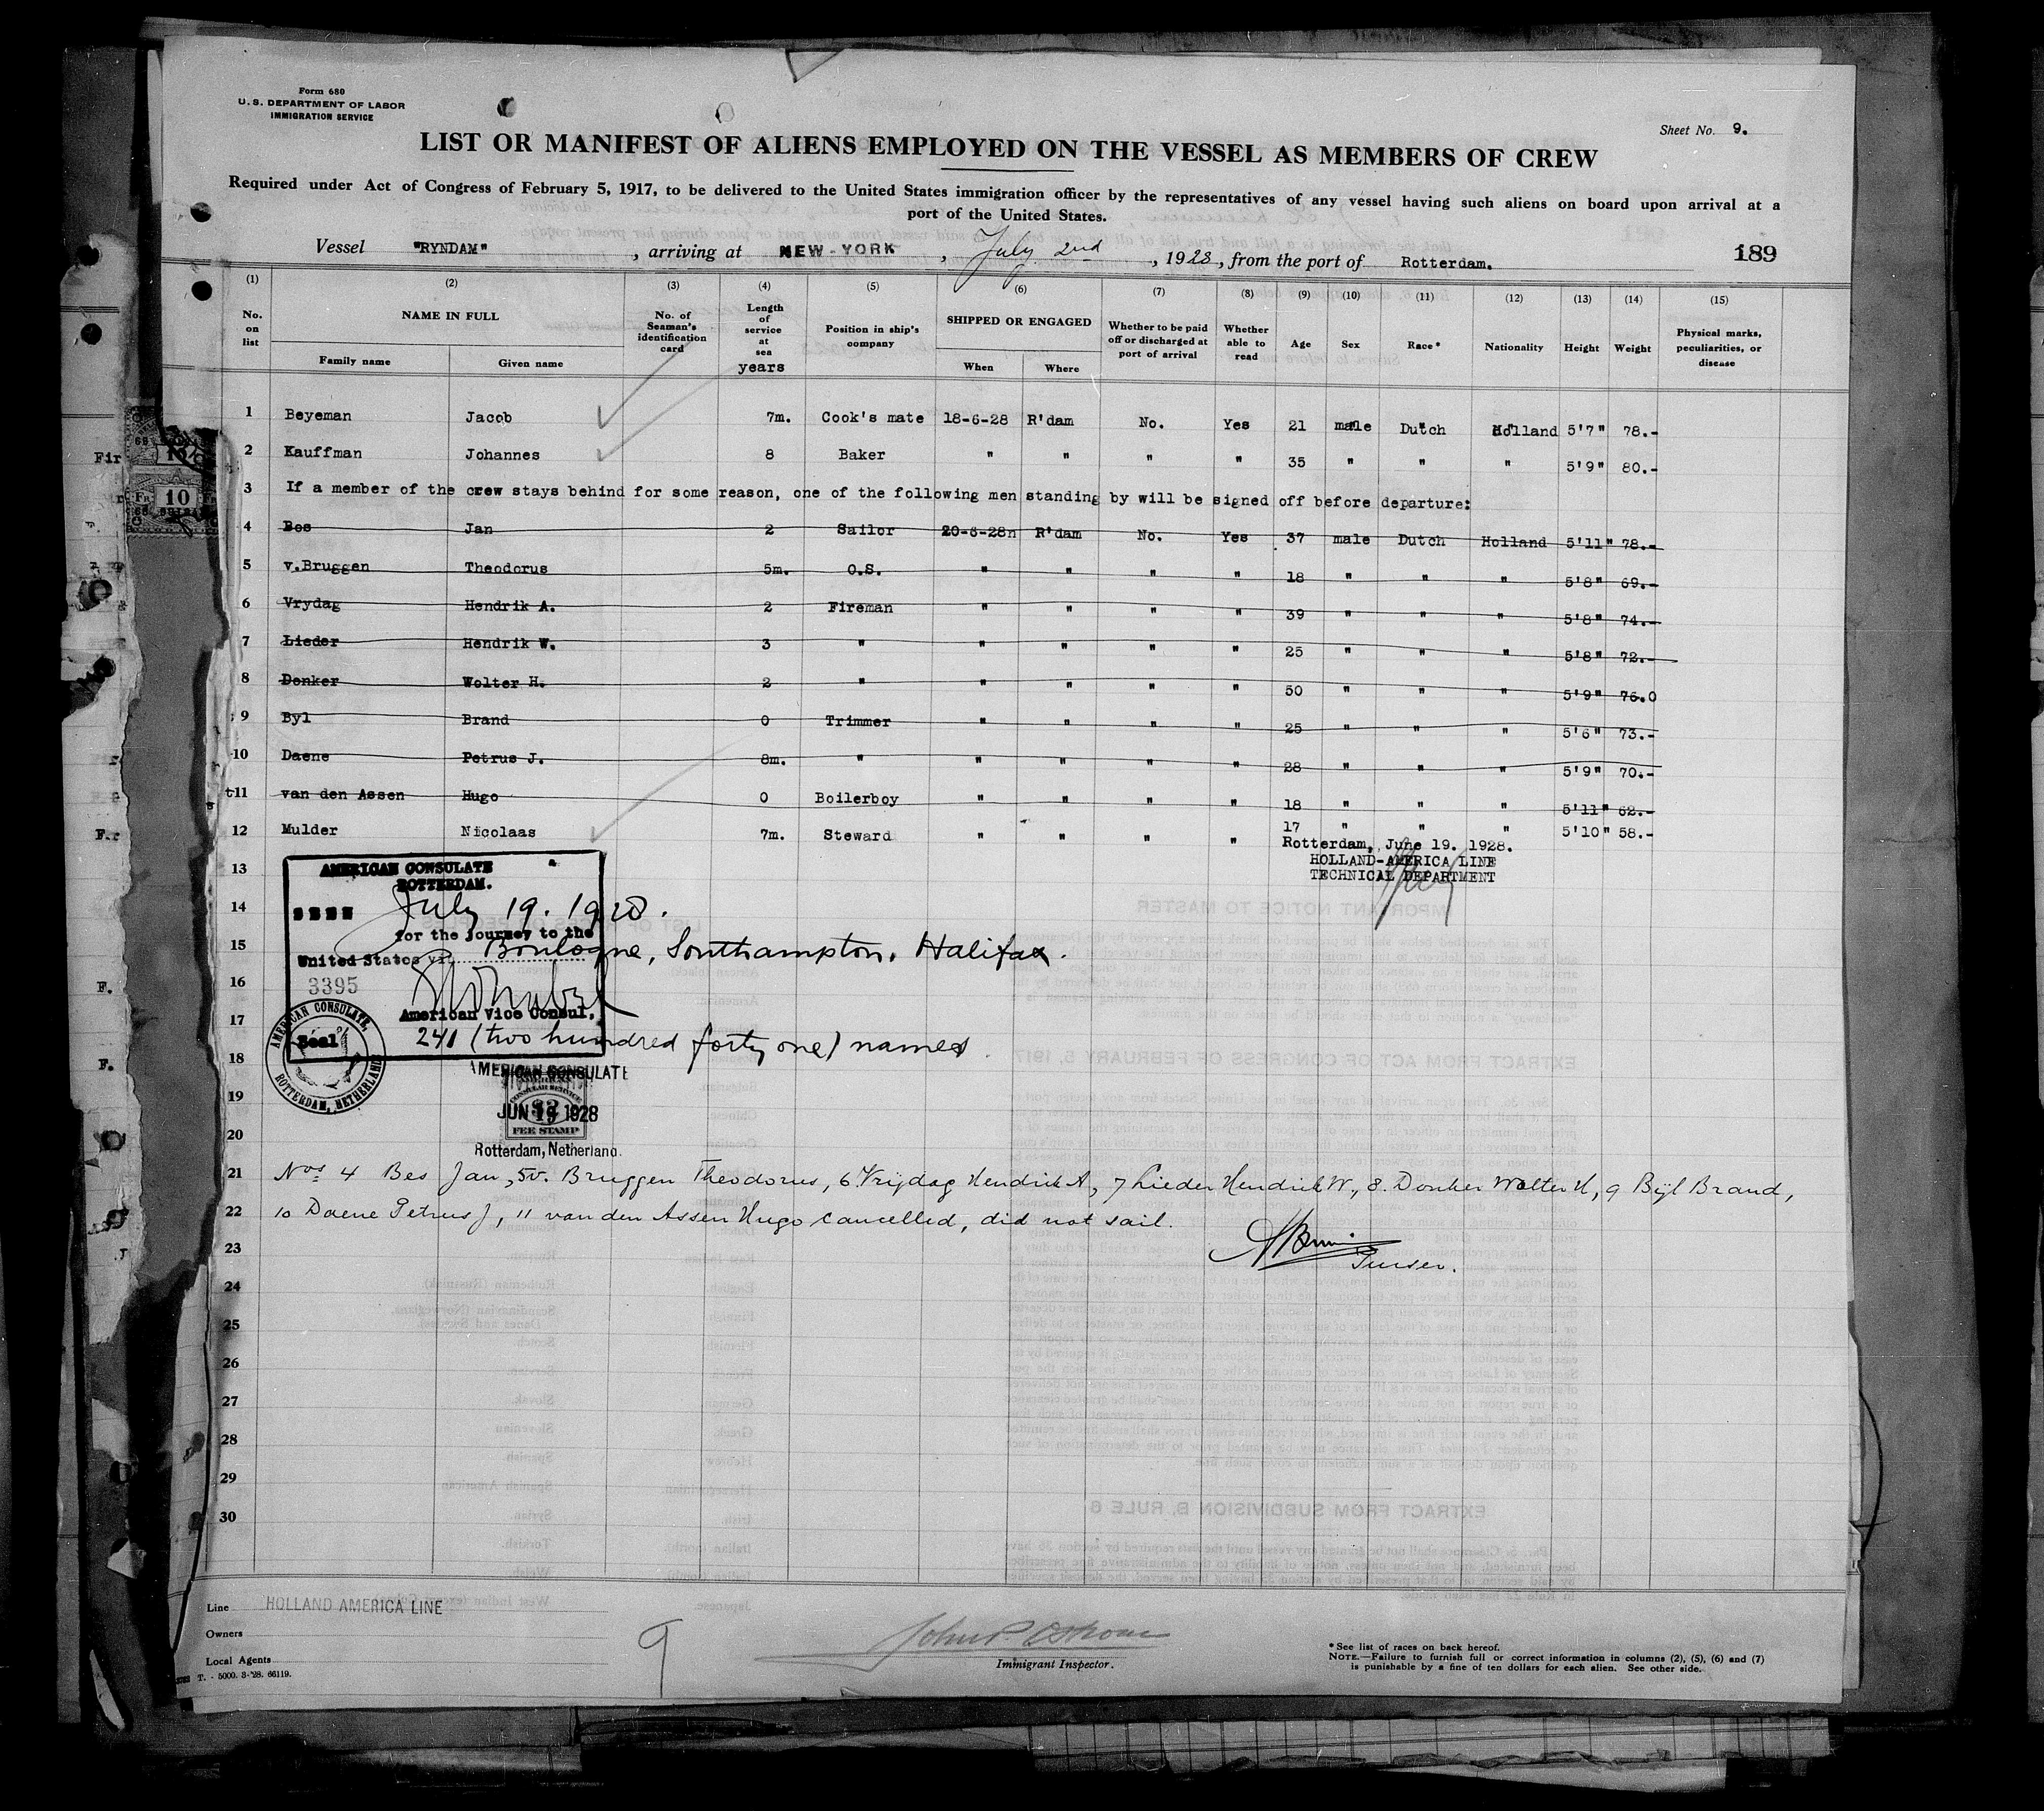 Form 680
U. S. DEPARTMENT OF LABOR
IMMIGRATION SERVICE
Sheet No. 9.
LIST OR MANIFEST OF ALIENS EMPLOYED ON THE VESSEL AS MEMBERS OF CREW
Required under Act of Congress of February 5, 1917, to be delivered to the United States immigration officer by the representatives of any vessel having such aliens on board upon arrival at a
port of the United States.
Vessel "RYNDAM", arriving at NEW-YORK, July 2nd, 1928, from the port of Rotterdam. 189
(1) (2) (3) (4) (5) (6) (7) (8) (9) (10) (11) (12) (13) (14) (15)
No. on list NAME IN FULL Family name Given name No. of Seaman's identification card Length of service at sea years Position in ship's company SHIPPED OR ENGAGED When Where Whether to be paid off or discharged at port of arrival Whether able to read Age Sex Race* Nationality Height Weight Physical marks, peculiarities, or disease
1 Beyeman Jacob 7m. Cook's mate 18-6-28 R'dam No. Yes 21 male Dutch Holland 5'7" 78.-
2 Kauffman Johannes 8 Baker " " " " 35 " " " 5'9" 80.-
3 If a member of the crew stays behind for some reason, one of the following men standing by will be signed off before departure:
4 Bos Jan 2 Sailor 20-6-28n R'dam No. Yes 37 male Dutch Holland 5'11" 78.-
5 v.Bruggen Theodorus 5m. O.S. " " " " 18 " " " 5'8" 69.-
6 Vrydag Hendrik A. 2 Fireman " " " " 39 " " " 5'8" 74.-
7 Lieder Hendrik W. 3 " " " " " 25 " " " 5'8" 72.-
8 Donker Wolter H. 2 " " " " " 50 " " " 5'9" 76.0
9 Byl Brand 0 Trimmer " " " " 25 " " " 5'6" 73.-
10 Daene Petrus J. 8m. " " " " " 28 " " " 5'9" 70.-
11 van den Assen Hugo 0 Boilerboy " " " " 18 " " " 5'11" 62.-
12 Mulder Nicolaas 7m. Steward " " " " 17 " " " 5'10" 58.-
Rotterdam, June 19. 1928.
HOLLAND-AMERICA LINE
TECHNICAL DEPARTMENT
13
AMERICAN CONSULATE
ROTTERDAM.
14
SEEN July 19. 1928.
for the Journey to the
15
United States via Boulogne, Southampton, Halifax.
16
3395
American Vice Consul.
17
Seal
AMERICAN CONSULATE, ROTTERDAM, NETHERLANDS
241 (two hundred forty one) names
18
AMERICAN CONSULATE
19
JUN 19 1928
FEE STAMP
20
Rotterdam, Netherland.
21 Nos 4 Bes Jan, 5 v. Bruggen Theodorus, 6 Vrijdag Hendrik A, 7 Lieder Hendrik W., 8. Donker Wolter H, 9 Bijl Brand,
22 10 Daene Petrus J, 11 van den Assen Hugo cancelled, did not sail.
23
Purser.
24
25
26
27
28
29
30
Line HOLLAND AMERICA LINE
Owners
Local Agents
T. - 5000. 3-'28. 66119.
9
Immigrant Inspector.
*See list of races on back hereof.
NOTE.—Failure to furnish full or correct information in columns (2), (5), (6) and (7)
is punishable by a fine of ten dollars for each alien. See other side.
Fir
FR 10
F.r
F.
F.